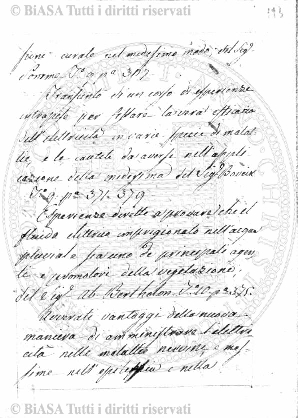 © BiASA Tutti i diritti riservati
193
fune curale nel medesimo modo del Sig.r
T.o 9 p.a 317
Transunto di un corso di esperienze
intraprese per l'efficacia
dell'elettricità in varie specie di malat-
tie, e le cautele da aversi nell'appli-
cazione della medesima del Sig.r
T.o 9 p.a 371. 379
Esperienze dirette a provare che il
fluido elettrico imprigionato nell'acqua
pluviale sia uno de principali agen-
ti e promotori della vegetazione,
del Sig.r Ab. Bertholon. T. 10 p.a 375.
Avverati vantaggi della nuova
maniera di amministrare l'elettri-
cità nelle malattie nervine, e mas-
sime nell'epilepsia e nella
© BiASA Tutti i diritti riservati